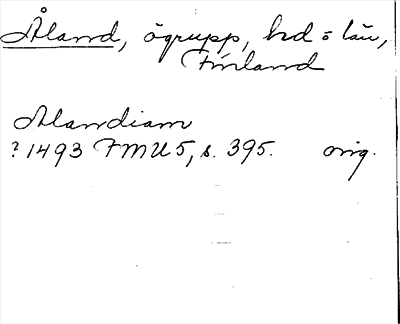 Åland, ögrupp, hd o län,
Finland
Alandiam
? 1493 FMU 5, s. 395. orig.